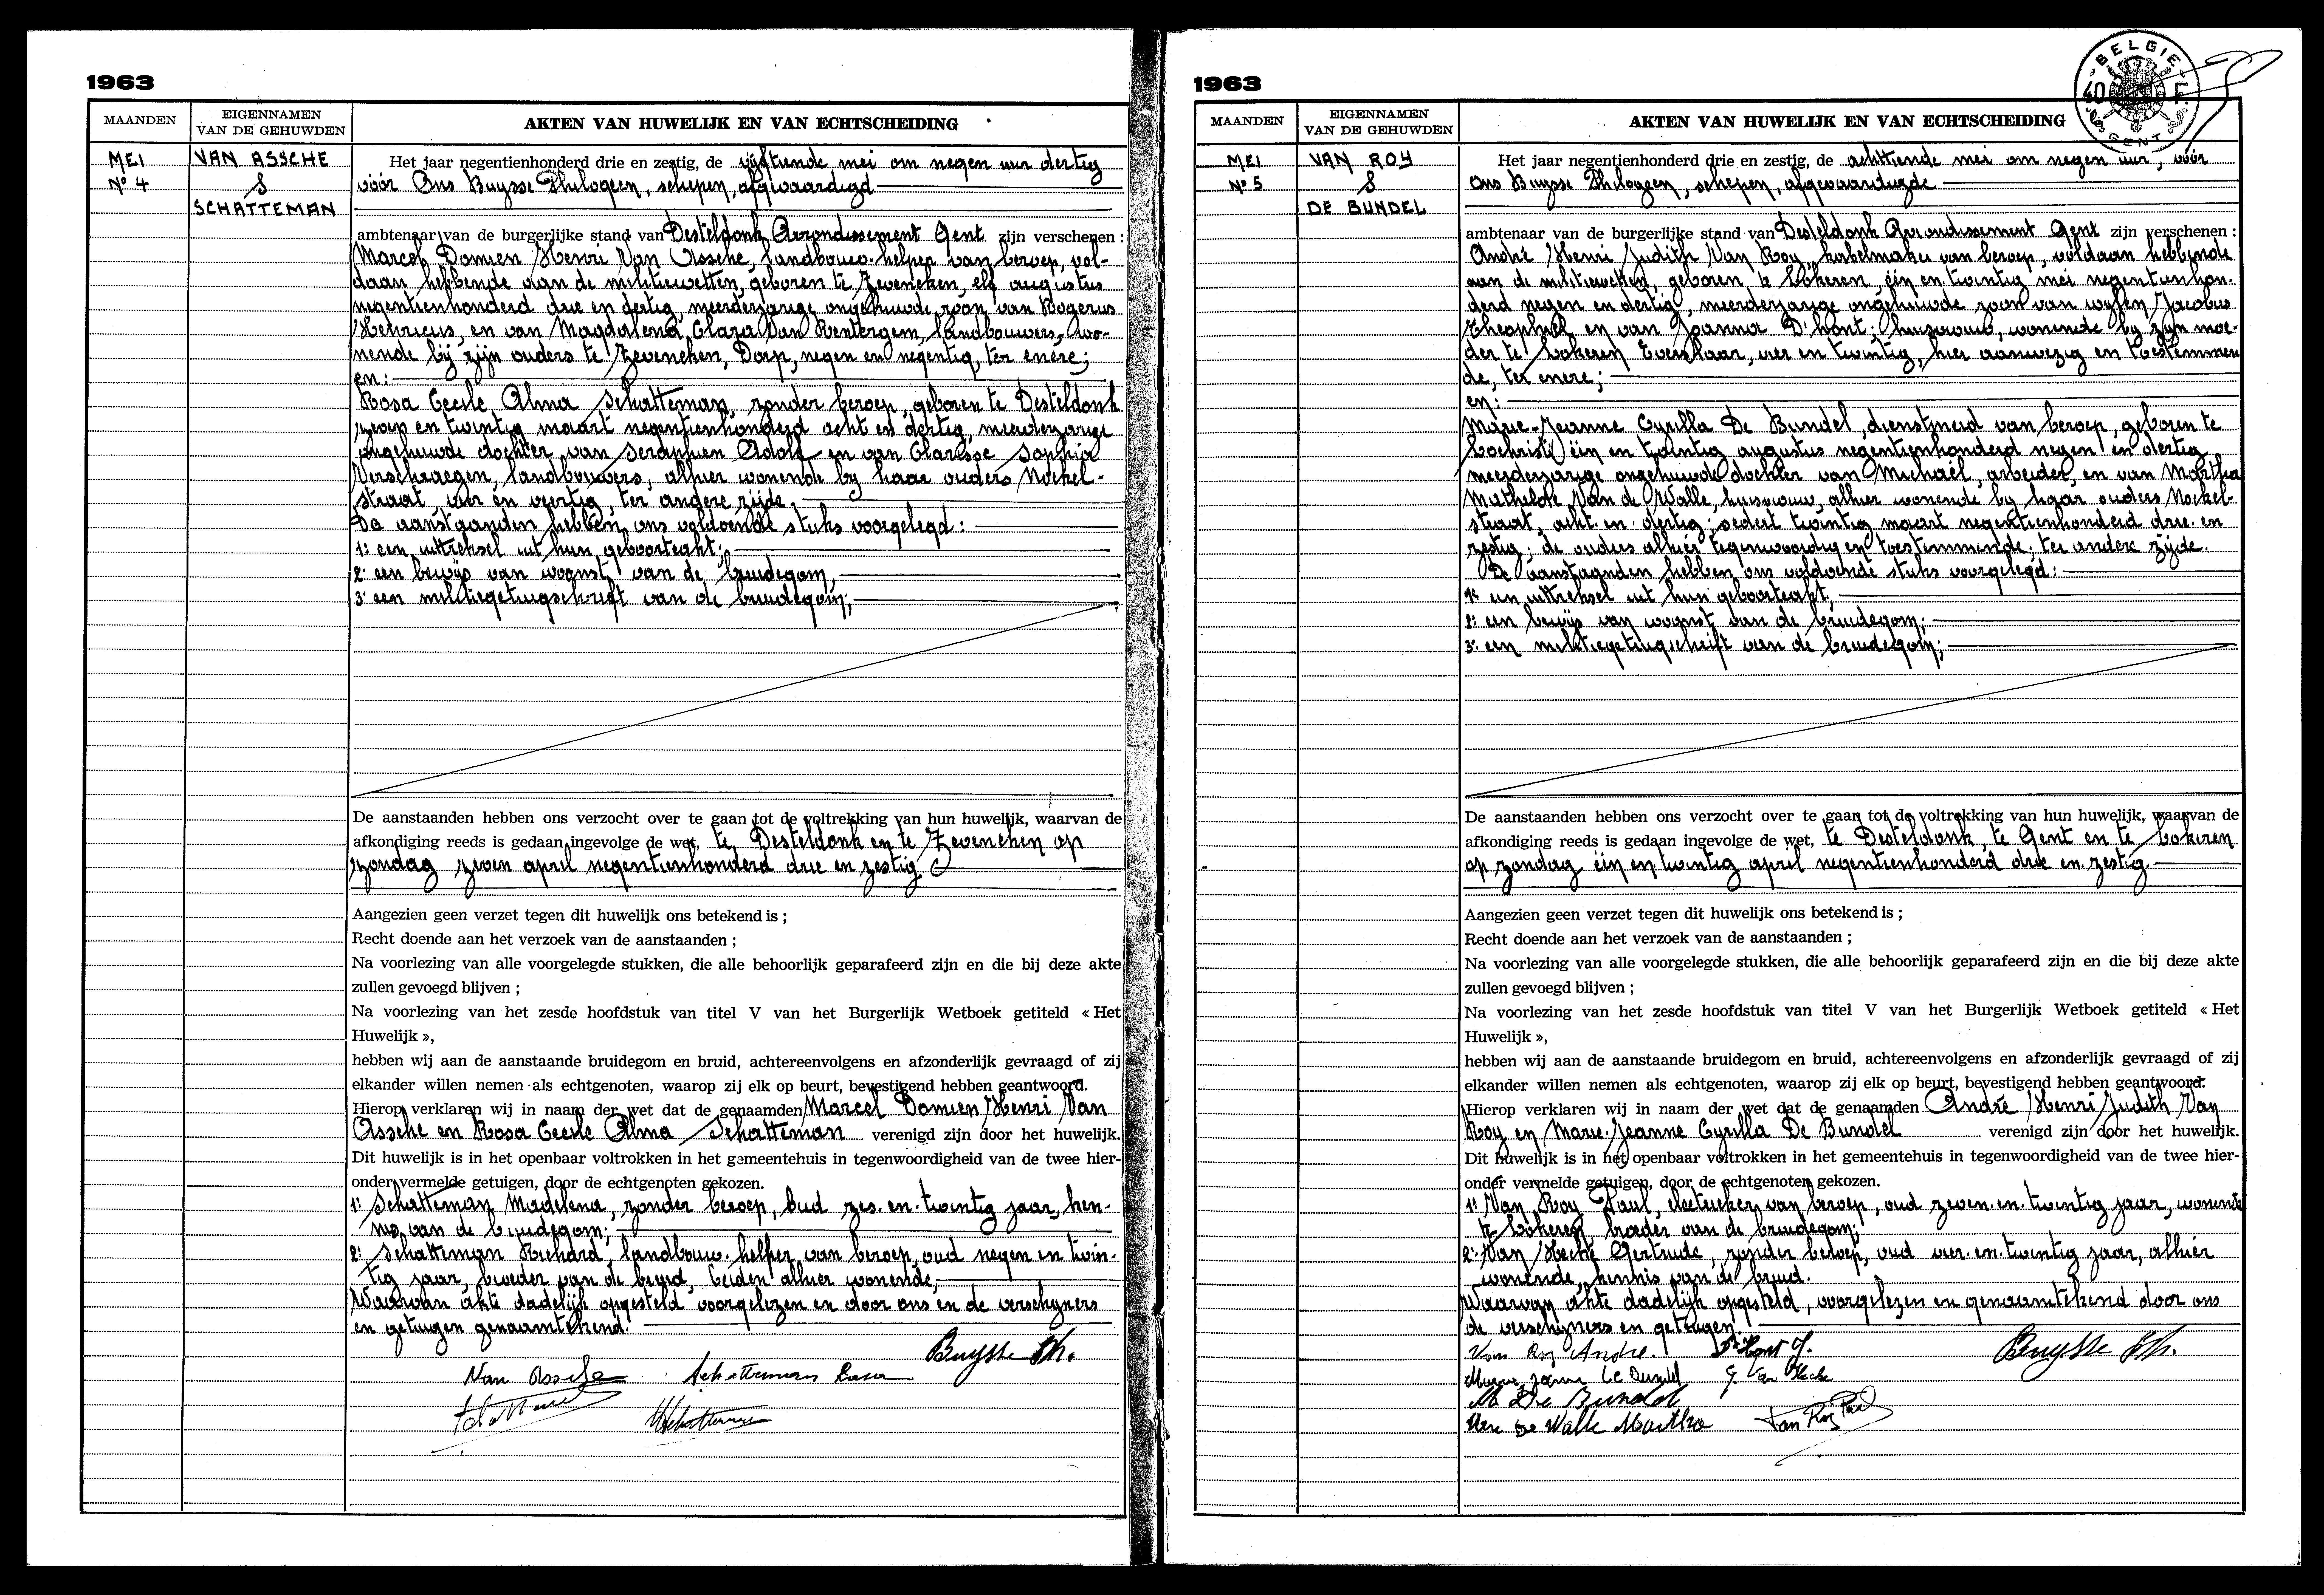 1963
MAANDEN
EIGENNAMEN
VAN DE GEHUWDEN
AKTEN VAN HUWELIJK EN VAN ECHTSCHEIDING
MEI
Nº 4
VAN ASSCHE
&
SCHATTEMAN
Het jaar negentienhonderd drie en zestig, de vijftiende mei om negen uur dertig
vóór Ons Buysse Philogeen, schepen, afgevaardigd
ambtenaar van de burgerlijke stand van Desteldonk Arrondissement Gent zijn verschenen :
Marcel Damien Henri Van Assche, landbouw-helper van beroep, vol-
daan hebbende aan de militiewetten, geboren te Zeveneken, elf augustus
negentienhonderd drie en dertig, meerderjarige ongehuwde zoon van Rogerus
Henricus, en van Magdalena Clara Van Rentergem, landbouwers, wo-
nende bij zijn ouders te Zeveneken, Dorp, negen en negentig, ter enere;
en:
Rosa Cecile Alma Schatteman, zonder beroep, geboren te Desteldonk
zeven en twintig maart negentienhonderd acht en dertig, meerderjarige
ongehuwde dochter van Seraphien Adolf en van Clarisse Sophia
Verschraegen, landbouwers, alhier wonende bij haar ouders Moekel-
straat, vier en veertig, ter andere zijde.
De aanstaanden hebben ons voldoende stuks voorgelegd:
1: een uittreksel uit hun geboorteakt;
2: een bewijs van woonst van de bruidegom;
3: een militiegetuigschrift van de bruidegom;
De aanstaanden hebben ons verzocht over te gaan tot de voltrekking van hun huwelijk, waarvan de
afkondiging reeds is gedaan ingevolge de wet, te Desteldonk en te Zeveneken op
zondag zeven april negentienhonderd drie en zestig
Aangezien geen verzet tegen dit huwelijk ons betekend is ;
Recht doende aan het verzoek van de aanstaanden ;
Na voorlezing van alle voorgelegde stukken, die alle behoorlijk geparafeerd zijn en die bij deze akte
zullen gevoegd blijven ;
Na voorlezing van het zesde hoofdstuk van titel V van het Burgerlijk Wetboek getiteld « Het
Huwelijk »,
hebben wij aan de aanstaande bruidegom en bruid, achtereenvolgens en afzonderlijk gevraagd of zij
elkander willen nemen als echtgenoten, waarop zij elk op beurt, bevestigend hebben geantwoord.
Hierop verklaren wij in naam der wet dat de genaamden Marcel Damien Henri Van
Assche en Rosa Cecile Alma Schatteman verenigd zijn door het huwelijk.
Dit huwelijk is in het openbaar voltrokken in het gemeentehuis in tegenwoordigheid van de twee hier-
onder vermelde getuigen, door de echtgenoten gekozen.
1: Schatteman Madelena, zonder beroep, oud zes-en-twintig jaar, ken-
nis van de bruidegom;
2: Schatteman Richard, landbouw-helper van beroep, oud negen en twin-
tig jaar, broeder van de bruid, beiden alhier wonende;
Waarvan akte dadelijk opgesteld voorgelezen en door ons en de verschijners
en getuigen genaamtekend.
Buysse Ph.
Van Assche Schatteman Rosa
1963
BELGIE
40 F
GENT
MAANDEN
EIGENNAMEN
VAN DE GEHUWDEN
AKTEN VAN HUWELIJK EN VAN ECHTSCHEIDING
MEI
Nº 5
VAN ROY
&
DE BUNDEL
Het jaar negentienhonderd drie en zestig, de achttiende mei om negen uur, vóór
Ons Buysse Philogeen, schepen, afgevaardigde
ambtenaar van de burgerlijke stand van Desteldonk Arrondissement Gent zijn verschenen :
André Henri Judith Van Roy, kabelmaker van beroep, voldaan hebbende
aan de militiewetten, geboren te Lokeren, één en twintig mei negentienhon-
derd negen en dertig, meerderjarige ongehuwde zoon van wijlen Jacobus
Theophiel en van Joanna D'hont; huisvrouw, wonende bij zijn moe-
der te Lokeren Everslaar, vier en twintig, hier aanwezig en toestemmen
de, ter enere;
en:
Marie-Jeanne Cyrilla De Bundel, dienstmeid van beroep, geboren te
Lochristi één en twintig augustus negentienhonderd negen en dertig
meerderjarige ongehuwde dochter van Michaël, arbeider, en van Martha
Mathilde Van de Walle, huisvrouw, alhier wonende bij haar ouders Moekel-
straat, acht-en-dertig; sedert twintig maart negentienhonderd drie-en
zestig; de ouders alhier tegenwoordig en toestemmende; ter andere zijde.
De aanstaanden hebben ons voldoende stuks voorgelegd:
1: een uittreksel uit hun geboorteakt;
2: een bewijs van woonst van de bruidegom;
3: een militiegetuigschrift van de bruidegom;
De aanstaanden hebben ons verzocht over te gaan tot de voltrekking van hun huwelijk, waarvan de
afkondiging reeds is gedaan ingevolge de wet, te Desteldonk, te Gent en te Lokeren
op zondag één en twintig april negentienhonderd drie en zestig.
Aangezien geen verzet tegen dit huwelijk ons betekend is ;
Recht doende aan het verzoek van de aanstaanden ;
Na voorlezing van alle voorgelegde stukken, die alle behoorlijk geparafeerd zijn en die bij deze akte
zullen gevoegd blijven ;
Na voorlezing van het zesde hoofdstuk van titel V van het Burgerlijk Wetboek getiteld « Het
Huwelijk »,
hebben wij aan de aanstaande bruidegom en bruid, achtereenvolgens en afzonderlijk gevraagd of zij
elkander willen nemen als echtgenoten, waarop zij elk op beurt, bevestigend hebben geantwoord.
Hierop verklaren wij in naam der wet dat de genaamden André Henri Judith Van
Roy en Marie-Jeanne Cyrilla De Bundel verenigd zijn door het huwelijk.
Dit huwelijk is in het openbaar voltrokken in het gemeentehuis in tegenwoordigheid van de twee hier-
onder vermelde getuigen, door de echtgenoten gekozen.
1: Van Roy Paul, electrieker van beroep, oud zeven-en-twintig jaar, wonende
te Lokeren broeder van de bruidegom;
2: Van Hecke Gertrude, zonder beroep, oud vier-en-twintig jaar, alhier
wonende, kennis van de bruid.
Waarvan akte dadelijk opgesteld, voorgelezen en genaamtekend door ons
de verschijners en getuigen.
Van Roy André. D'Hont J. Buysse Ph.
Marie Jeanne De Bundel G. Van Hecke
M De Bundel
Van De Walle Martha Van Roy Paul